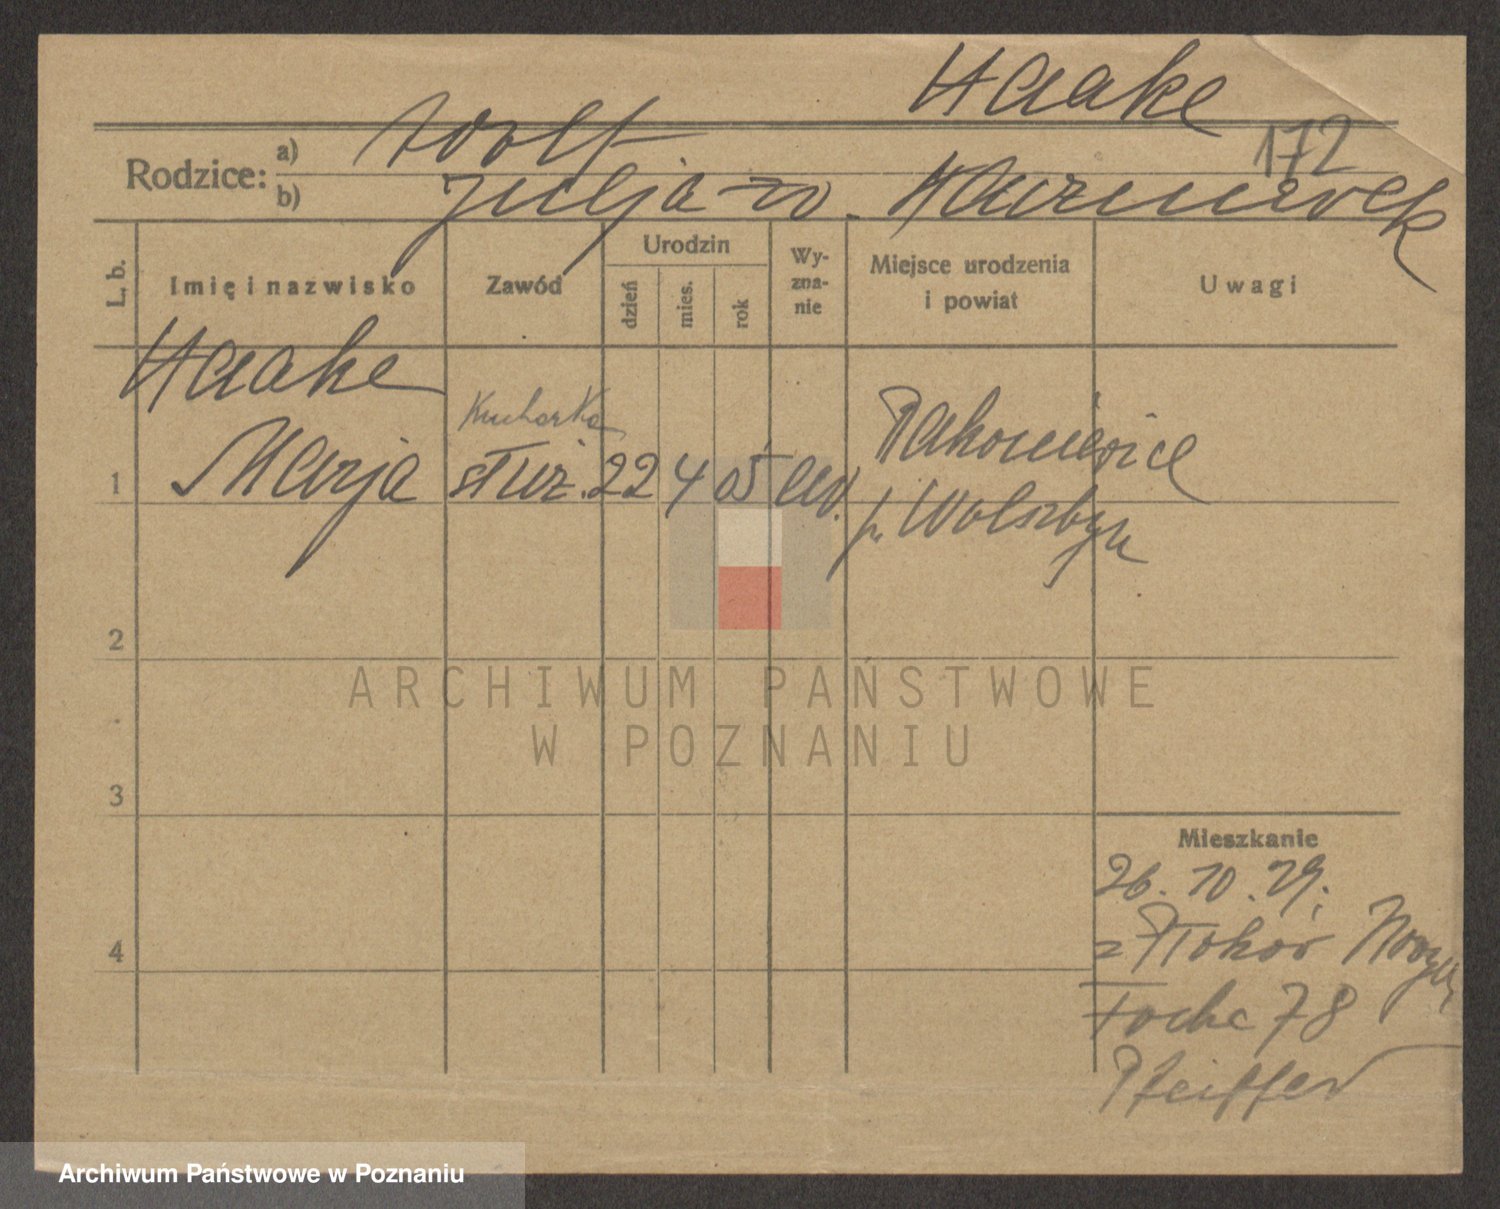 Haake
172
Rodzice: a) Adolf
b) Julja z d. Kaczmarek
L. b.
Imię i nazwisko
Zawód
Urodzin
dzień
mies.
rok
Wy-
zna-
nie
Miejsce urodzenia
i powiat
Uwagi
Haake
Kucharka
1 Marja służ. 22 4 05 ew. Rakoniewice
p. Wolsztyn
2
ARCHIWUM PAŃSTWOWE
W POZNANIU
3
Mieszkanie
26. 10. 29.
4
Focha 78
Pfeiffer
Archiwum Państwowe w Poznaniu